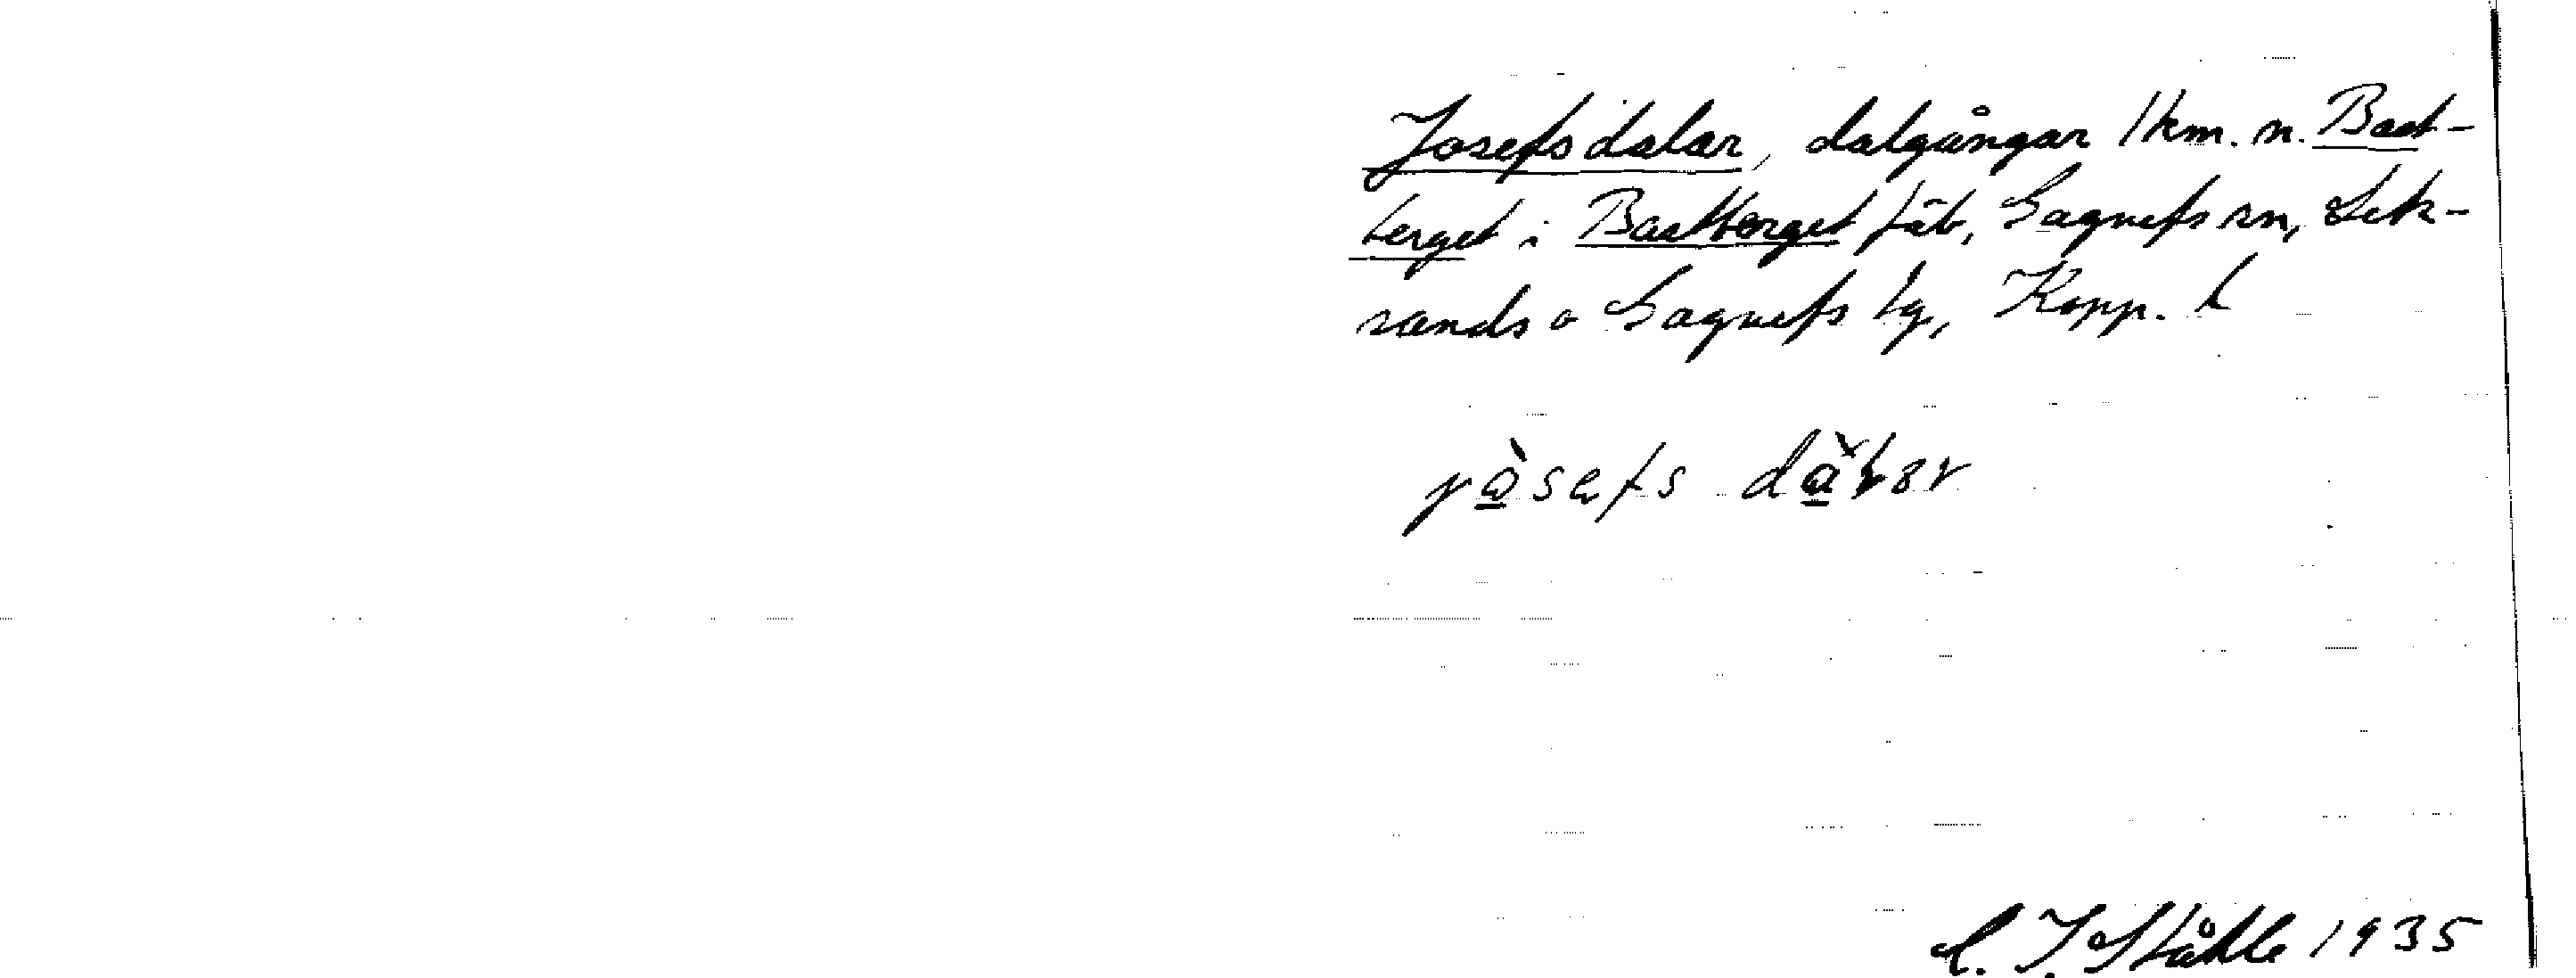 Josefsdalar, dalgångar 1 km. n. Bast-
berget i Bastberget fäb, Gagnefs sn, Lek-
sands o Gagnefs tg, Kopp. l
C. I. Ståhle 1935